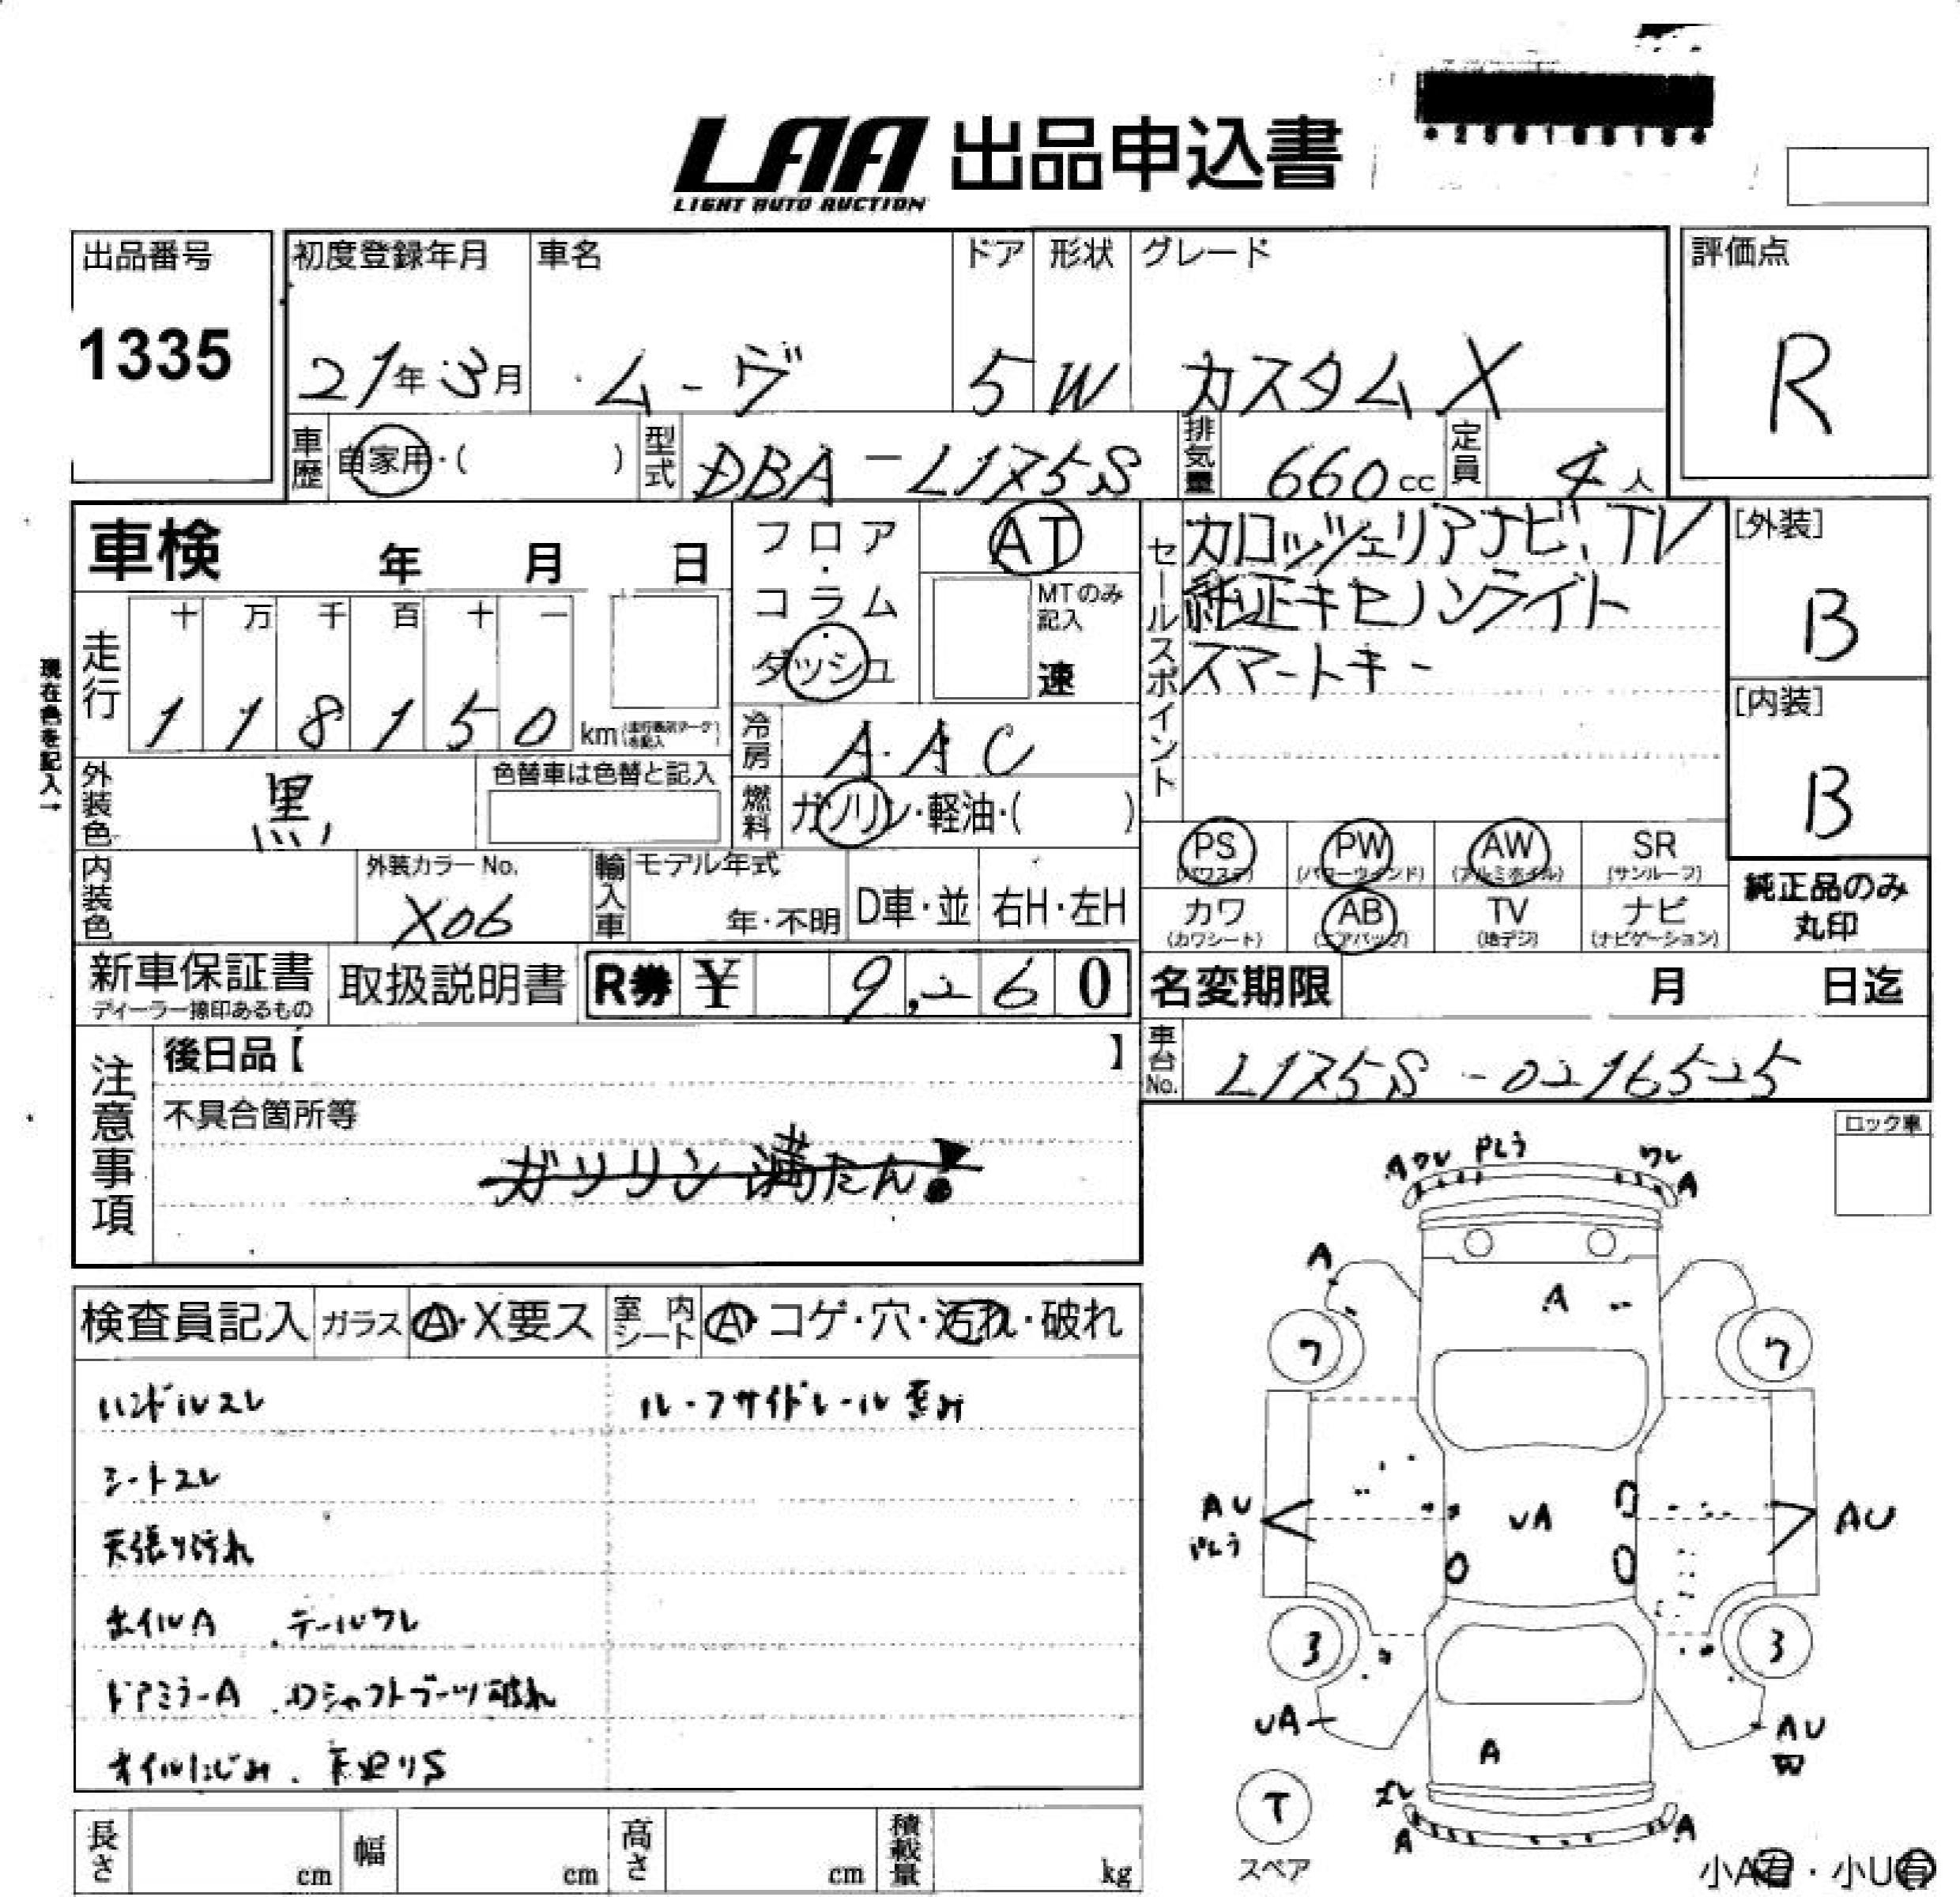 LAA 出品申込書
LIGHT AUTO AUCTION
出品番号
1335
初度登録年月
21年3月
車名
ムーヴ
ドア
5
形状
W
グレード
カスタムX
評価点
R
車歴
自家用・( )
型式
DBA-L175S
排気量
660cc
定員
4人
車検 年 月 日
フロア・コラム
ダッシュ
AT
MTのみ記入
速
セールスポイント
カロッツェリアナビ、TV
純正キセノンライト
スマートキー
[外装]
B
[内装]
B
現在色を記入→
走行
十 万 千 百 十 一
1 1 8 1 5 0 km
冷房
AAC
外装色
黒
色替車は色替と記入
燃料
ガソリン・軽油・( )
PS
(パワステ)
PW
(パワーウインド)
AW
(アルミホイル)
SR
(サンルーフ)
カワ
(カワシート)
AB
(エアバッグ)
TV
(地デジ)
ナビ
(ナビゲーション)
純正品のみ
丸印
内装色
外装カラーNo.
X06
輸入車
モデル年式
年・不明
D車・並
右H・左H
新車保証書
ディーラー捺印あるもの
取扱説明書
R券 ¥ 9,260
名変期限 月 日迄
車台No.
L175S-0216525
注意事項
後日品【 】
不具合箇所等
ガソリン満たん!
ロック車
検査員記入
ガラス
A・X要ス
室内シート
A・コゲ・穴・汚れ・破れ
ハンドルスレ
ルーフサイドレール歪み
シートスレ
天張り汚れ
ホイルA テールワレ
ドアミラーA Dシャフトブーツ破れ
オイルにじみ 下廻りS
ワレ
ワレ
A
A
A
A
7
7
AU
UA
AU
3
3
UA
AU
A
A
A
T
スペア
小A有・小U有
長さ cm
幅 cm
高さ cm
積載量 kg